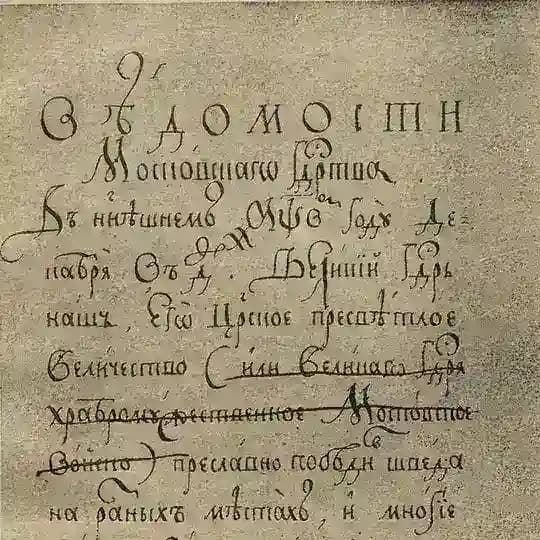 Вѣдомости
Московскагѡ Гдртва
Въ нн҃ѣшнемъ ҂аѱв году де=
кабря въ д҃. Великій Гдрь
нашъ, Егѡ Црское пресвѣтлое
величество (или великагѡ Гдря
храброму жественное Московское
воиско) преславно победи шведа
на разныхъ мѣстахъ, и многіе